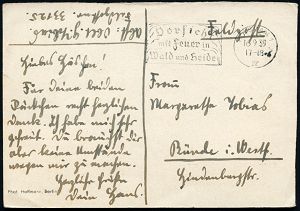 Abs. Obll. Gefr.
Feldpostnr. 33125.
Feldpost
Vorsicht
mit Feuer in
Wald und Heide
Liebes Häschen!
Für deine beiden
Päckchen recht herzlichen
Dank. Ich habe mich sehr
gefreut. Du brauchst dir
aber keine Umstände
wegen mir zu machen.
Herzliche Grüße
Dein Hans.
Frau
Margarethe Tobias
Bünde i. Westf.
Hindenburgstr.
Phot. Hoffmann, Berlin